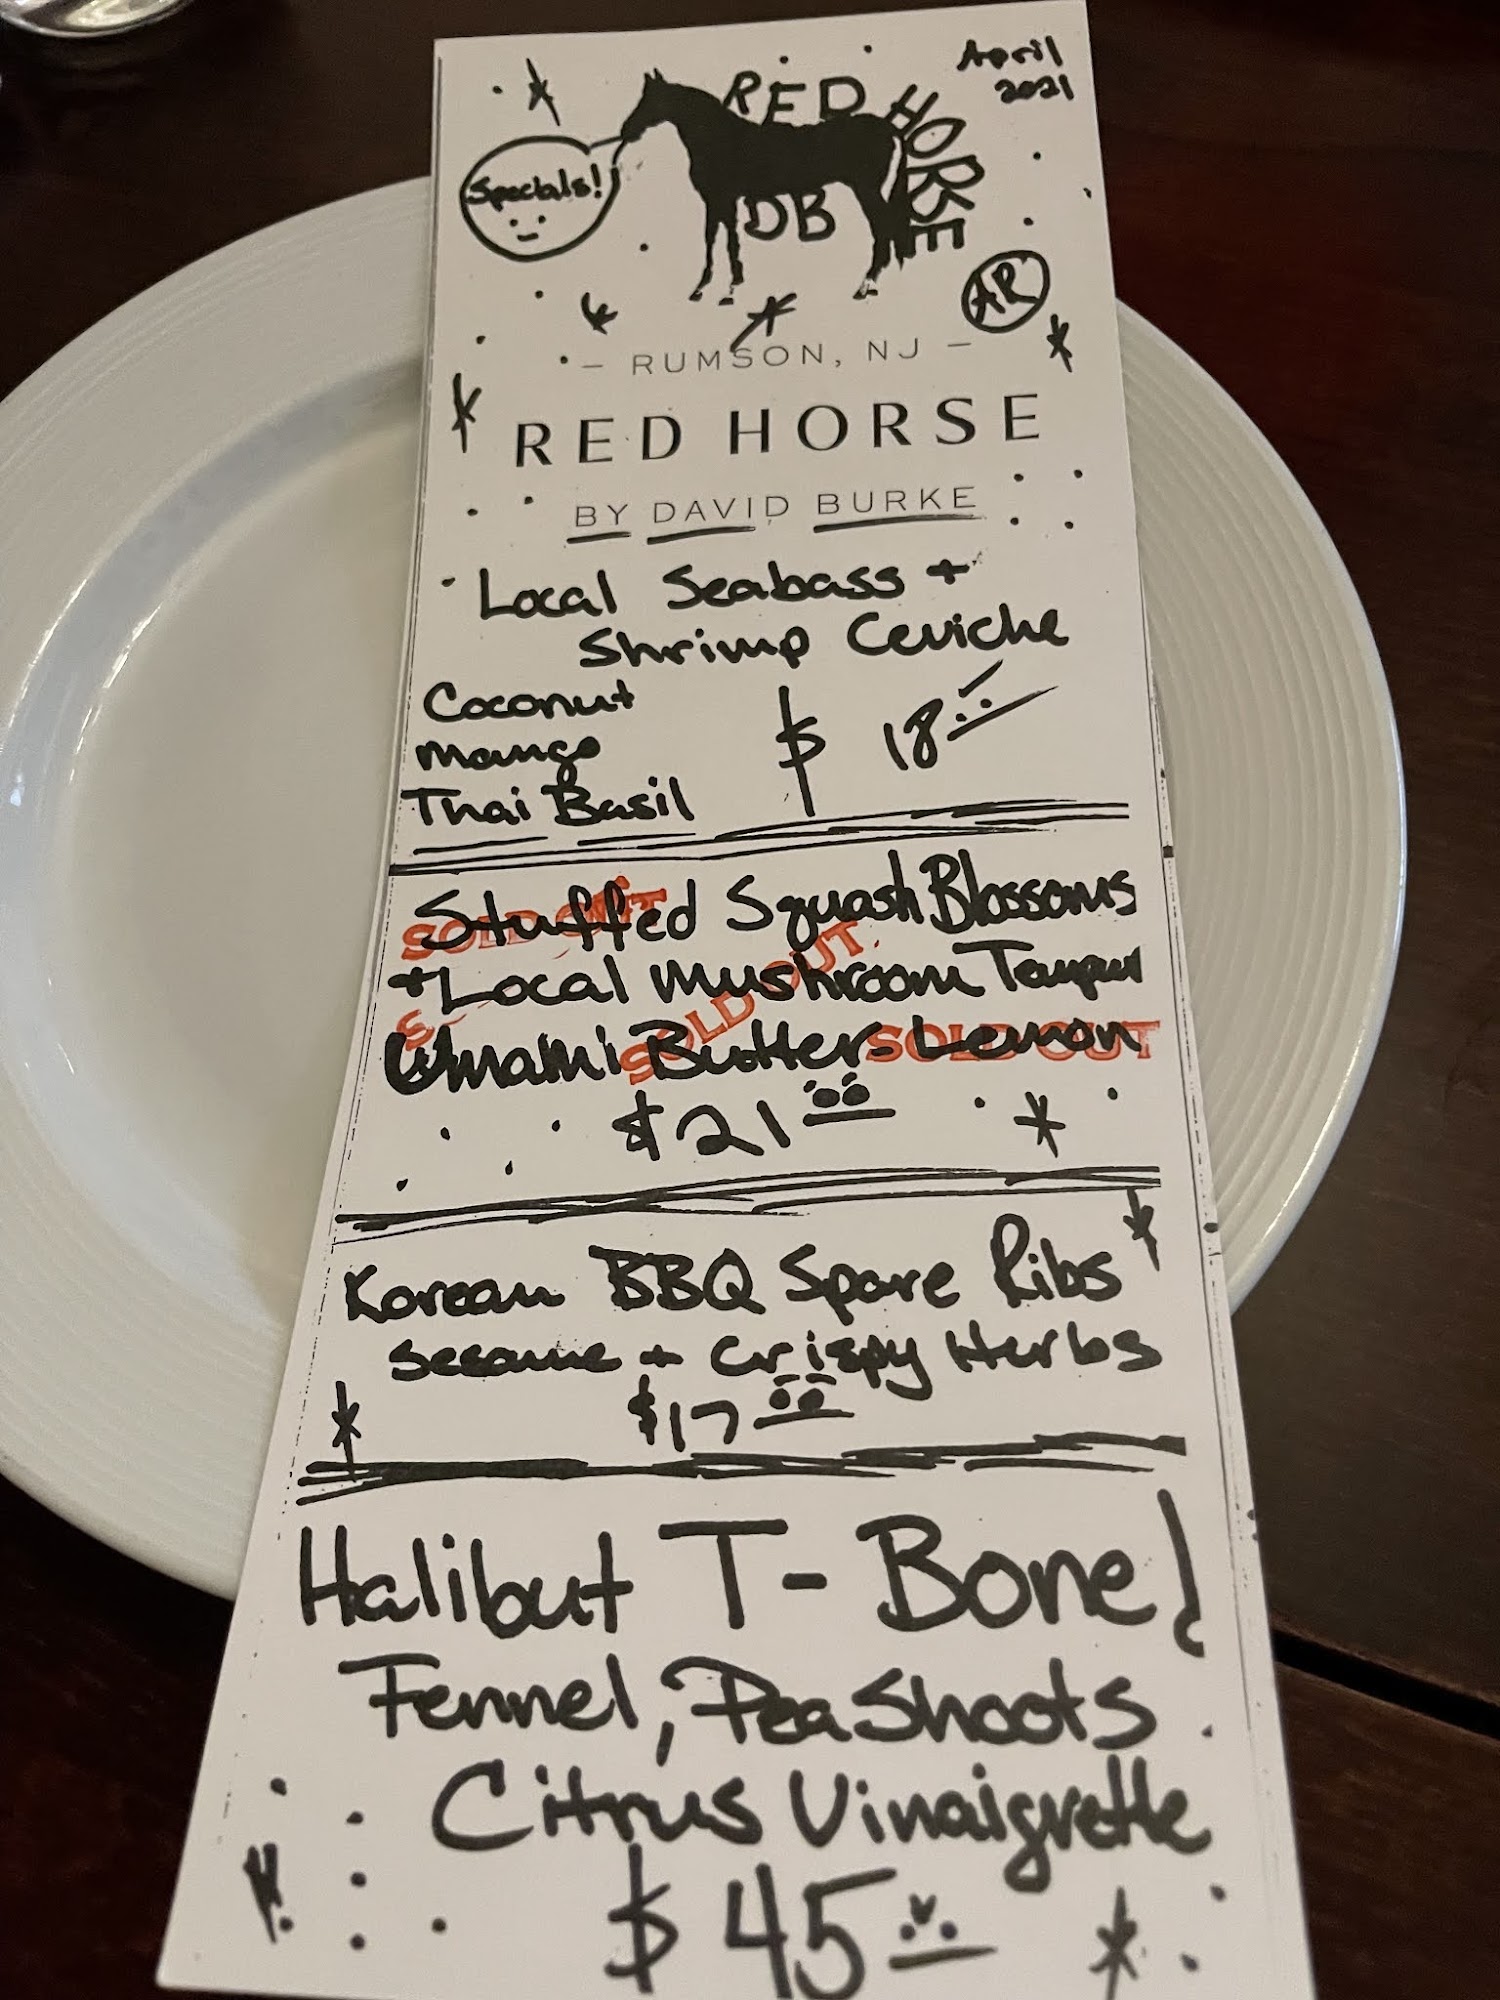 April
2021
RED HORSE
Specials!
DB
AR
– RUMSON, NJ –
RED HORSE
BY DAVID BURKE
Local Seabass +
Shrimp Ceviche
Coconut
Mango
Thai Basil
$ 18
Stuffed Squash Blossoms
SOLD OUT
+ Local Mushroom Tempura
SOLD OUT
Umami Butter - Lemon
SOLD OUT
$21
Korean BBQ Spare Ribs
Sesame + Crispy Herbs
$17
Halibut T-Bone!
Fennel, Pea Shoots
Citrus Vinaigrette
$45